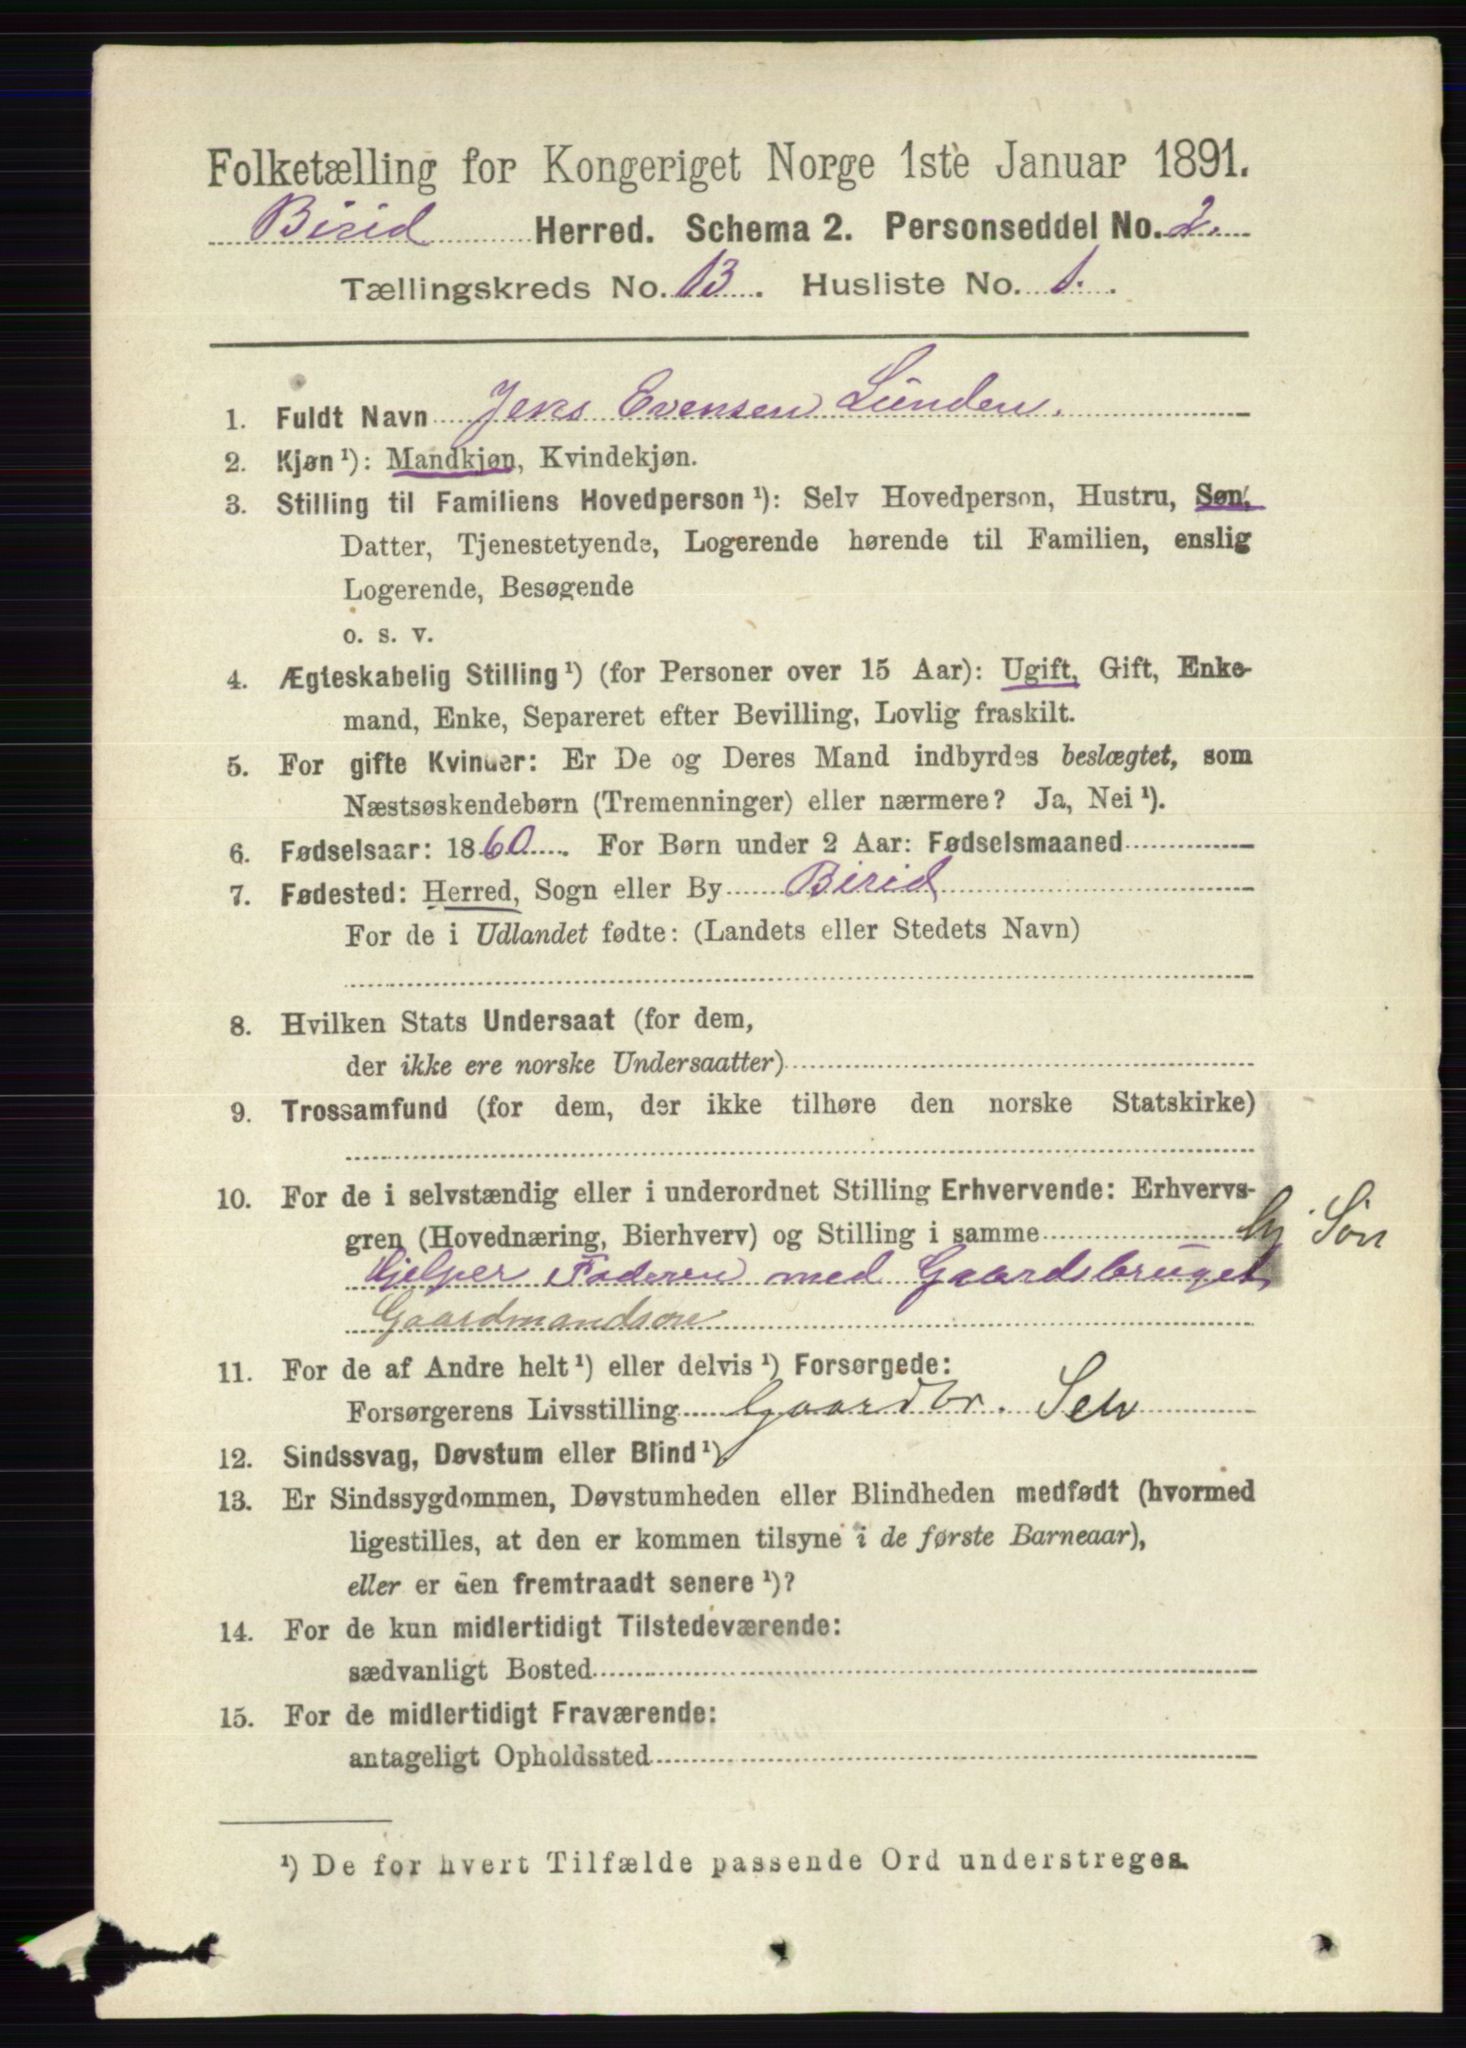 Folketælling for Kongeriget Norge 1ste Januar 1891.
Birid Herred. Schema 2. Personseddel No. 2.
Tællingskreds No. 13. Husliste No. 1.
1. Fuldt Navn Jens Evensen Lunden.
2. Kjøn¹): Mandkjøn, Kvindekjøn.
3. Stilling til Familiens Hovedperson¹): Selv Hovedperson, Hustru, Søn,
Datter, Tjenestetyende, Logerende hørende til Familien, enslig
Logerende, Besøgende
o. s. v.
4. Ægteskabelig Stilling¹) (for Personer over 15 Aar): Ugift, Gift, Enke-
mand, Enke, Separeret efter Bevilling, Lovlig fraskilt.
5. For gifte Kvinder: Er De og Deres Mand indbyrdes beslægtet, som
Næstsøskendebørn (Tremenninger) eller nærmere? Ja, Nei¹).
6. Fødselsaar: 1860. For Børn under 2 Aar: Fødselsmaaned
7. Fødested: Herred, Sogn eller By Birid
For de i Udlandet fødte: (Landets eller Stedets Navn)
8. Hvilken Stats Undersaat (for dem,
der ikke ere norske Undersaatter)
9. Trossamfund (for dem, der ikke tilhøre den norske Statskirke)
10. For de i selvstændig eller i underordnet Stilling Erhvervende: Erhvervs-
gren (Hovednæring, Bierhverv) og Stilling i samme Søn
Hjelper Faderen med Gaardsbruget
Gaardmandsøn
11. For de af Andre helt¹) eller delvis¹) Forsørgede:
Forsørgerens Livsstilling Gaardbr. Selv
12. Sindssvag, Døvstum eller Blind¹).
13. Er Sindssygdommen, Døvstumheden eller Blindheden medfødt (hvormed
ligestilles, at den er kommen tilsyne i de første Barneaar),
eller er den fremtraadt senere¹)?
14. For de kun midlertidigt Tilstedeværende:
sædvanligt Bosted
15. For de midlertidigt Fraværende:
antageligt Opholdssted
¹) De for hvert Tilfælde passende Ord understreges.